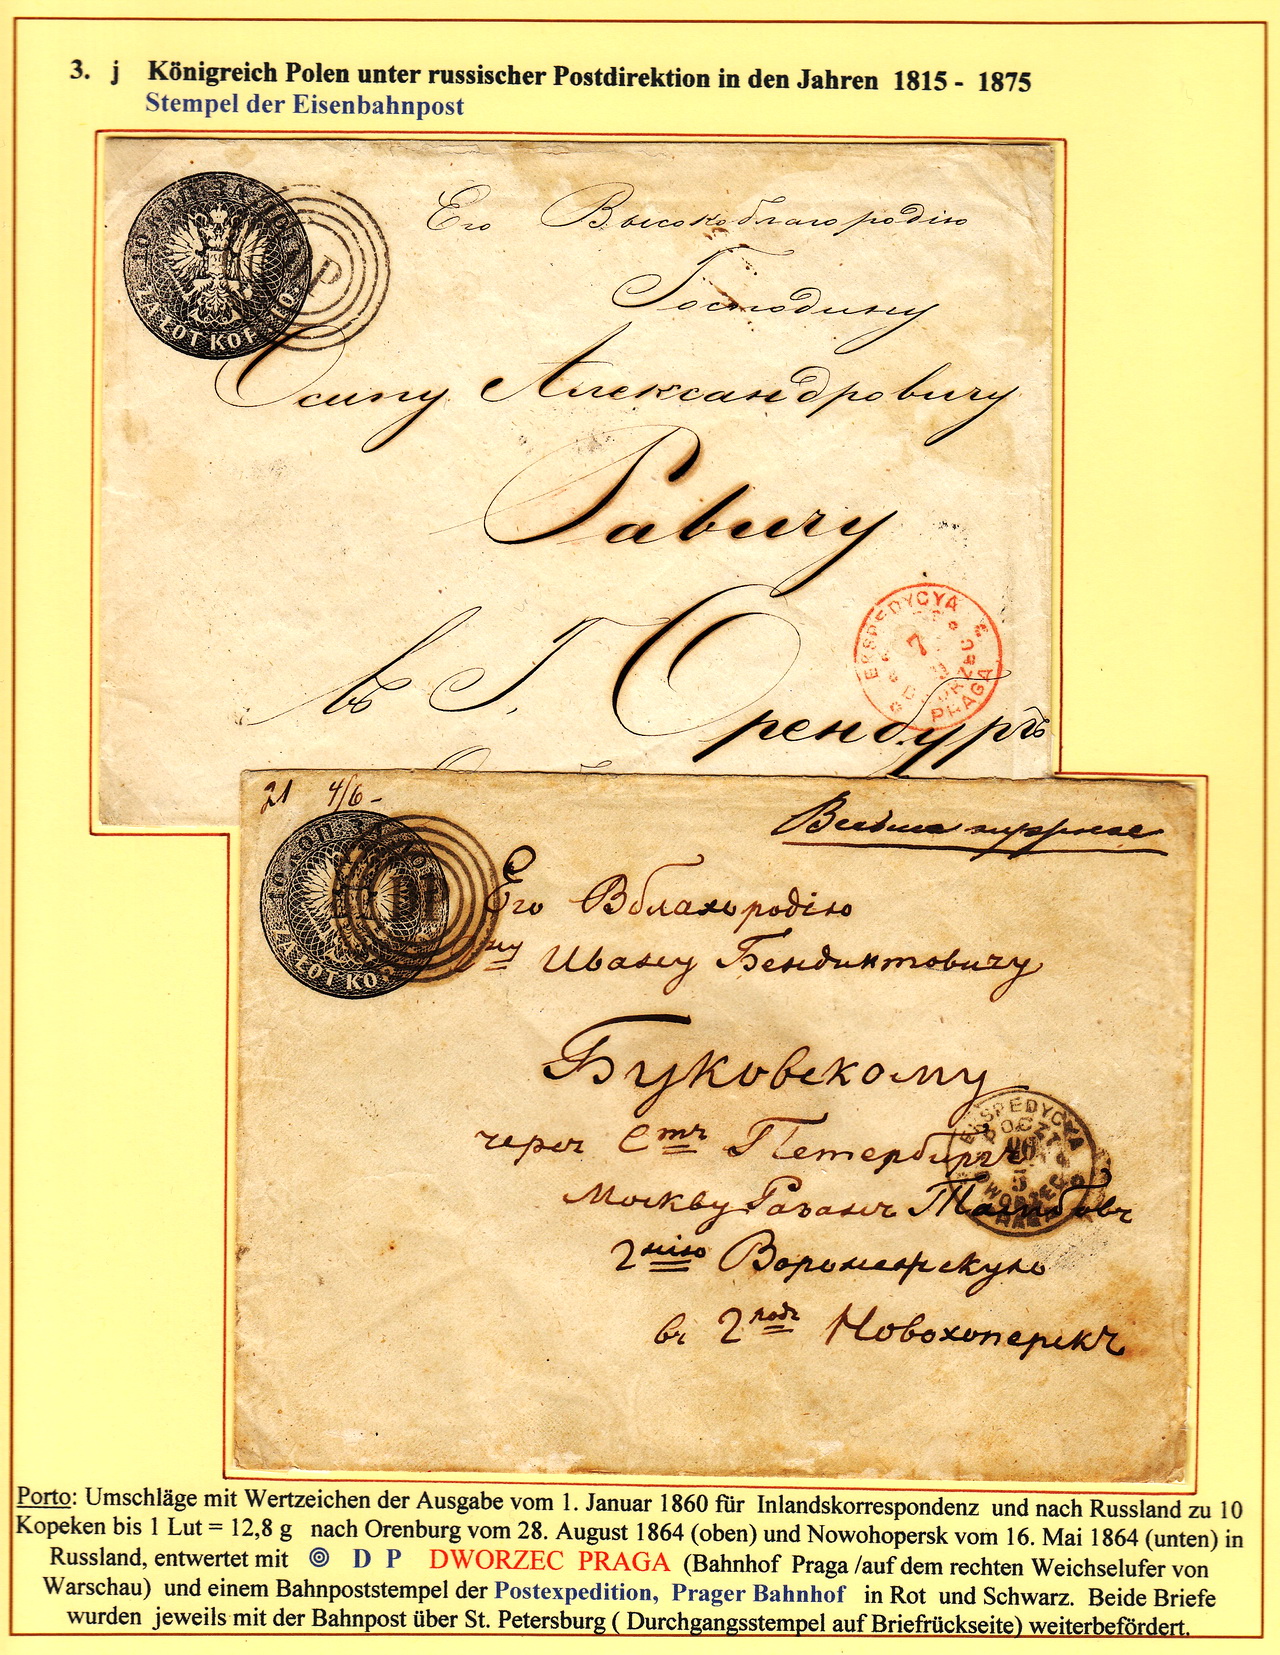 3. j Königreich Polen unter russischer Postdirektion in den Jahren 1815 - 1875
Stempel der Eisenbahnpost
ЗА ŁOT KOP. 10.
P
Его Высокоблагородію
Господину
Осипу Александровичу
Равичу
въ Г. Оренбургъ
EKSPEDYCYA
7
PRAGA
21 4/6 -
Весьма нужное
ЗА ŁOT KOP.
DP
Его Вблагородію
Ивану Бендиктовичу
Буковскому
чрезъ Стъ Петербургъ
Москву Рязань Тамбовъ
Воронежскую
въ Новохоперскъ
EKSPEDYCYA
POCZT
5
DWORZEC
PRAGA
Porto: Umschläge mit Wertzeichen der Ausgabe vom 1. Januar 1860 für Inlandskorrespondenz und nach Russland zu 10
Kopeken bis 1 Lut = 12,8 g nach Orenburg vom 28. August 1864 (oben) und Nowohopersk vom 16. Mai 1864 (unten) in
Russland, entwertet mit ◎ D P DWORZEC PRAGA (Bahnhof Praga /auf dem rechten Weichselufer von
Warschau) und einem Bahnpoststempel der Postexpedition, Prager Bahnhof in Rot und Schwarz. Beide Briefe
wurden jeweils mit der Bahnpost über St. Petersburg ( Durchgangsstempel auf Briefrückseite) weiterbefördert.